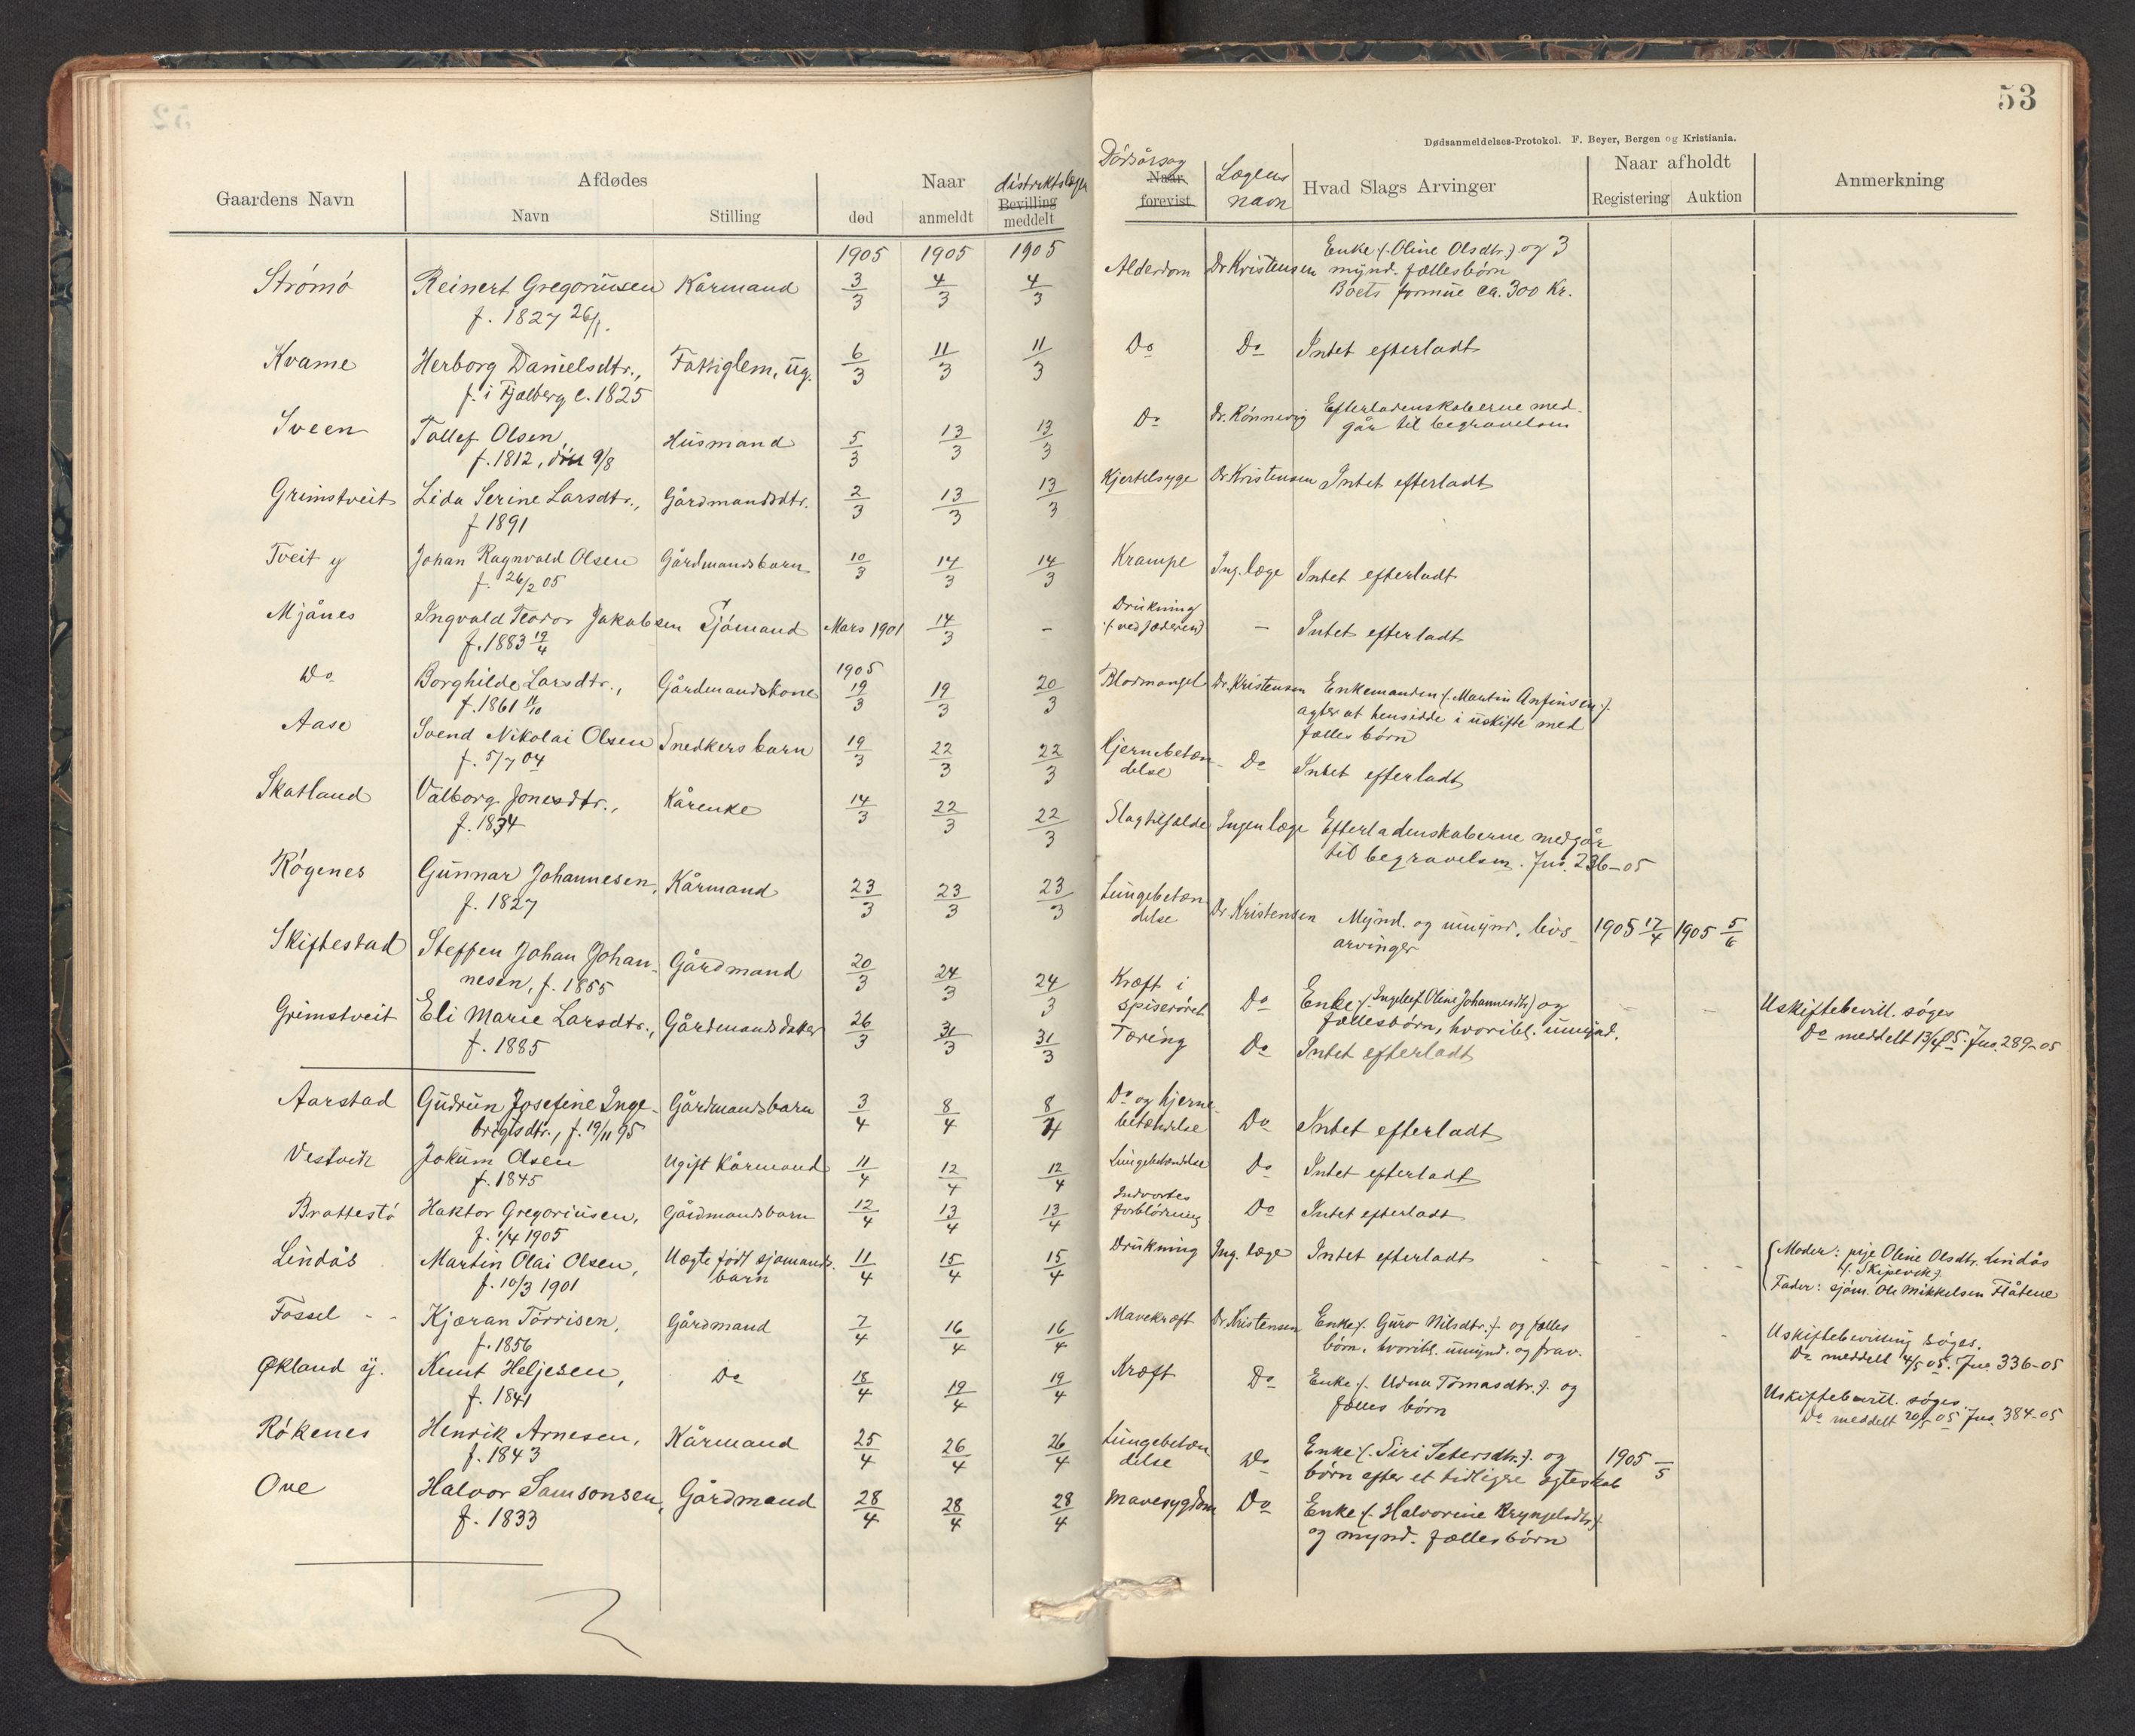 53
Dødsanmeldelses-Protokol. F. Beyer, Bergen og Kristiania.
Gaardens Navn
Afdødes
Navn
Stilling
Naar
død
anmeldt
distriktslæge
Bevilling
meddelt
Dödsårsag
Naar
forevist
Lægens
navn
Hvad Slags Arvinger
Naar afholdt
Registering
Auktion
Anmerkning
1905 1905 1905
Strømö Reinert Gregoriusen Kårmand 3/3 4/3 4/3 Alderdom Dr Kristensen Enke (. Oline Olsdtr.) og 3
f. 1827 26/1. mynd. fællesbörn
Boets formue ca. 300 Kr.
Kvame Herborg Danielsdtr., Fattiglem, ug. 6/3 11/3 11/3 Do Do Intet efterladt
f. i Fjælberg c. 1825
Sveen Tollef Olsen, Husmand 5/3 13/3 13/3 Do Dr. Rönnevig Efterladenskaberne med-
f. 1812, 9/8 går til begravelsen
Grimstveit Lida Serine Larsdtr., Gårdmandsdtr. 2/3 13/3 13/3 Kjertelsyge Dr Kristensen Intet efterladt
f 1891
Tveit y Johan Ragnvald Olsen Gårdmandsbarn 10/3 14/3 14/3 Krampe Ing. læge Intet efterladt
f. 26/2 05
Mjånes Ingvald Teodor Jakobsen Sjömand Mars 1901 14/3 – Drukning – Intet efterladt
f. 1883 19/4 (ved Jæderen)
1905
Do Borghilde Larsdtr., Gårdmandskone 19/3 19/3 20/3 Blodmangel Dr. Kristensen Enkemanden (. Martin Anfinsen .)
f. 1861 11/10 agter at hensidde i uskifte med
fælles börn
Aase Svend Nikolai Olsen Snedkers barn 19/3 22/3 22/3 Hjernebetæn- Do Intet efterladt
f. 5/7 04 delse
Skatland Valborg Jonesdtr., Kårenke 14/3 22/3 22/3 Slagtilfælde Ingen læge Efterladenskaberne medgår
f. 1834 til begravelsen. Jno. 236-05
Rógenes Gunnar Johannesen, Kårmand 23/3 23/3 23/3 Lungebetæn Dr Kristensen Mynd. og umynd. livs- 1905 17/4 1905 5/6
f. 1827 delse arvinger
Skiftestad Steffen Johan Johan- Gårdmand 20/3 24/3 24/3 Kræft i Do Enke (. Ingeleif Oline Johannesdtr) og – – Uskiftebevill. søges
nesen, f. 1855 spiseröret fællesbörn, hvoribl. umynd. Do meddelt 13/4 05. Jno. 289-05
Grimstveit Eli Marie Larsdtr., Gårdmandsdatter 26/3 31/3 31/3 Tæring Do Intet efterladt
f. 1885
Aarstad Gudrun Josefine Inge- Gårdmandsbarn 3/4 8/4 8/4 Do og hjerne- Do Intet efterladt
brigtsdtr., f. 19/11 95 betændelse
Vestvik Jokum Olsen Ugift Kårmand 11/4 12/4 12/4 Lungebetændelse Do Intet efterladt
f. 1845
Brattestö Haktor Gregoriusen, Gårdmandsbarn 12/4 13/4 13/4 Indvortes Do Intet efterladt
f. 1/4 1905 forblödning
Lindås Martin Olai Olsen, Uægte född sjömands- 11/4 15/4 15/4 Drukning Ing. læge Intet efterladt - - - Moder: pige Oline Olsdtr. Lindås
f. 10/3 1901 barn (. Skipevik)
Fader: sjöm. Ole Mikkelsen Flåtene
Fossel - - Kjæran Törrisen, Gårdmand 7/4 16/4 16/4 Mavekræft Dr. Kristensen Enke (. Guro Nilsdtr. .) og fælles - - Uskiftebevilling søges.
f. 1856 börn, hvoribl. umynd. og frav. Do meddelt 4/5 05. Jno 336-05
Økland y. Knut Heljesen, Do 18/4 19/4 19/4 Kræft Do Enke (. Udna Tomasdtr. .) og Uskiftebevill. søges.
f. 1841 fælles börn Do meddelt 20/5 05 Jno. 384-05
Rökenes Henrik Arnesen, Kårmand 25/4 26/4 26/4 Lungebetæn Do Enke (. Siri Petersdtr. .) og 1905 –/5
f. 1843 delse börn efter et tidligere ægteskab
Ove Halvor Samsonsen, Gårdmand 28/4 28/4 28/4 Mavesygdom Do Enke (. Halvorine Brynjelsdtr .)
f. 1833 og mynd. fællesbörn